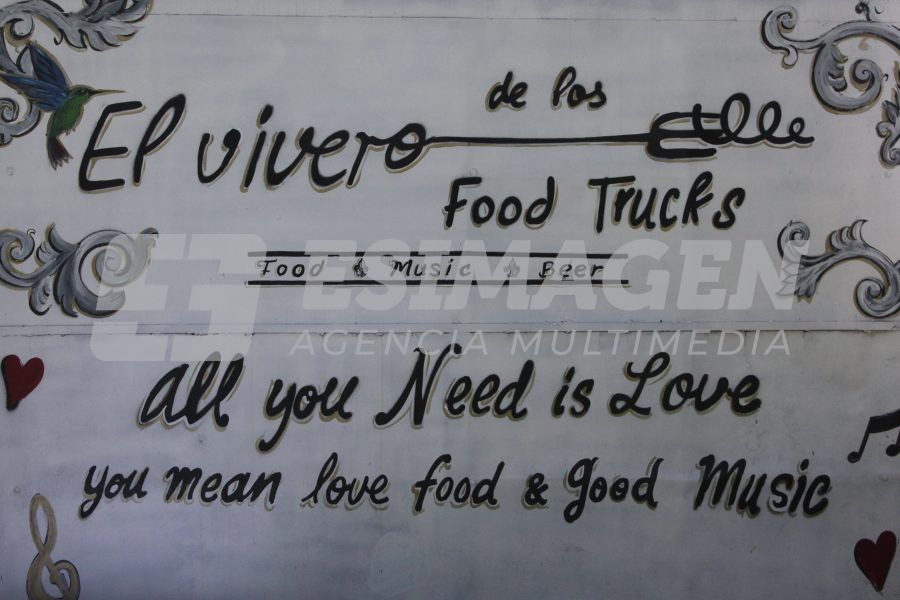 de los
El vivero Elle
Food Trucks
Food & Music & Beer
ESIMAGEN
AGENCIA MULTIMEDIA
all you Need is Love
you mean love food & good Music